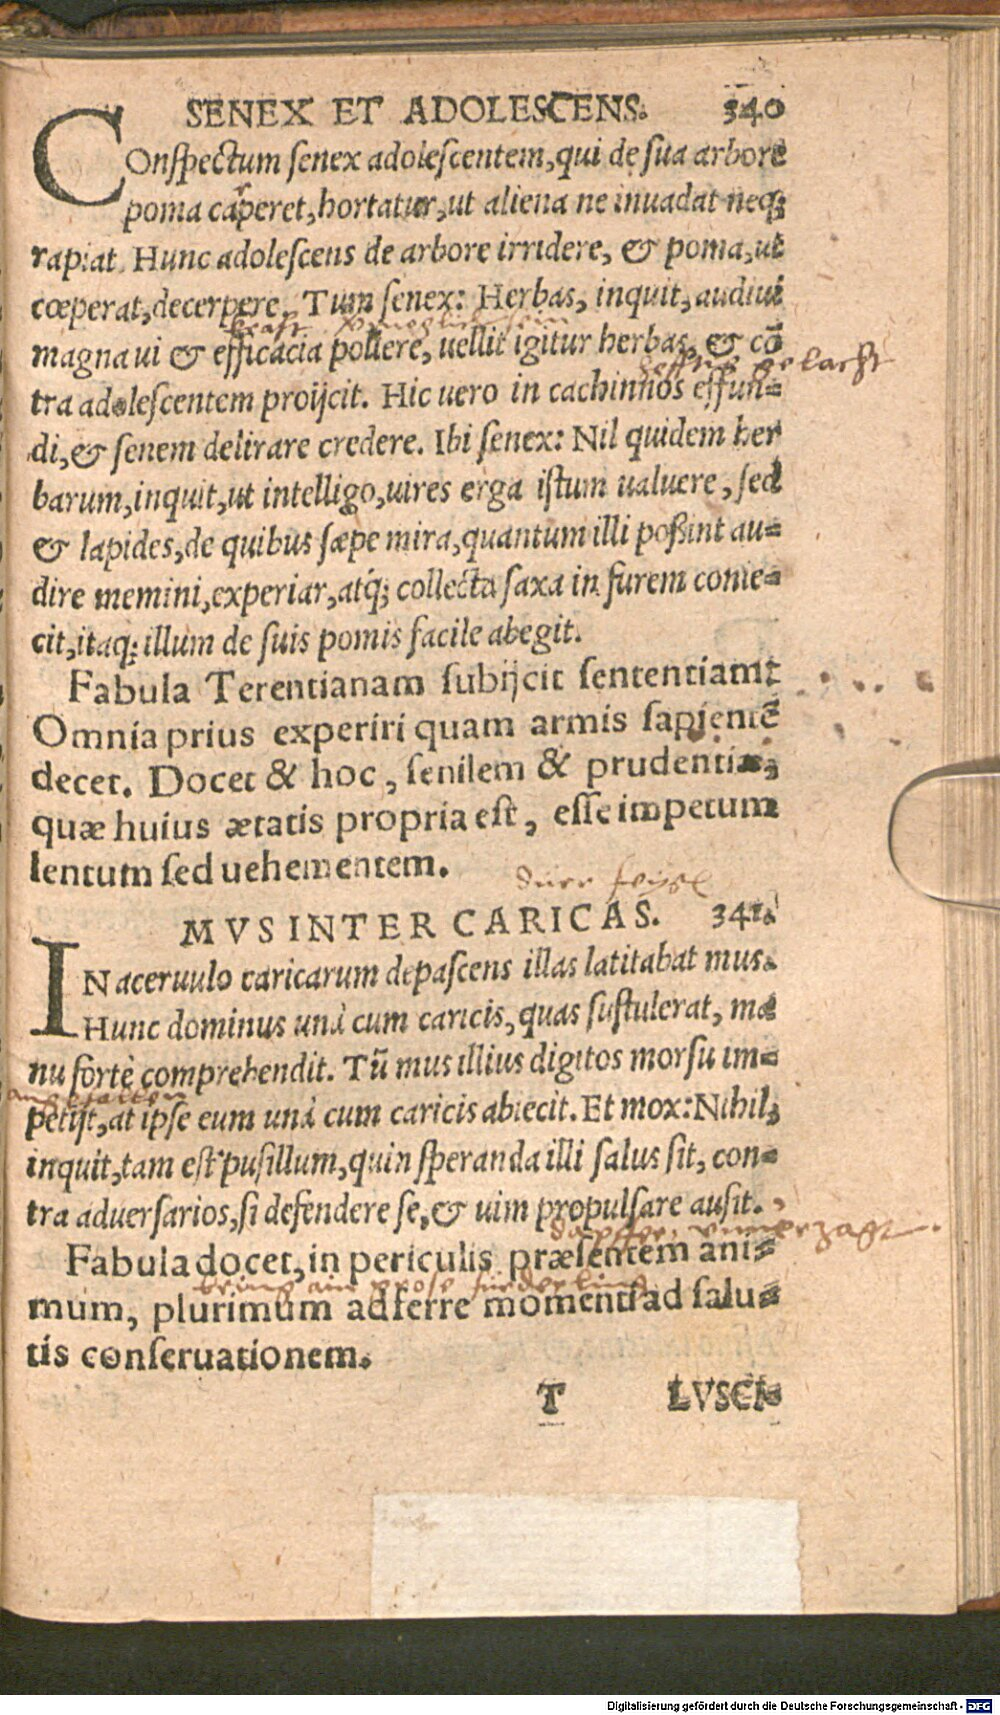 SENEX ET ADOLESCENS. 340
COnſpectum ſenex adoleſcentem, qui de ſua arbore
poma caperet, hortatur, ut aliena ne inuadat neq;
rapiat. Hunc adoleſcens de arbore irridere, & poma, ut
cœperat, decerpere. Tum ſenex: Herbas, inquit, audiui
magna ui & efficacia pollere, uellit igitur herbas, & cō
gelacht
tra adoleſcentem proijcit. Hic uero in cachinnos effun=
di, & ſenem delirare credere. Ibi ſenex: Nil quidem her
barum, inquit, ut intelligo, uires erga iſtum ualuere, ſed
& lapides, de quibus ſæpe mira, quantum illi poßint au=
dire memini, experiar, atq́; collecta ſaxa in furem conie=
cit, itaq; illum de ſuis pomis facile abegit.
Fabula Terentianam ſubijcit ſententiam:
Omnia prius experiri quam armis ſapientē
decet. Docet & hoc, ſenilem & prudentiæ,
quæ huius ætatis propria eſt, eſſe impetum
lentum ſed uehementem.
dürr feygl
MVS INTER CARICAS. 341.
IN aceruulo caricarum depaſcens illas latitabat mus.
Hunc dominus unà cum caricis, quas ſuſtulerat, ma
nu fortè comprehendit. Tū mus illius digitos morſu im=
petijt, at ipſe eum unà cum caricis abiecit. Et mox: Nihil,
inquit, tam eſt puſillum, quin ſperanda illi ſalus ſit, con=
tra aduerſarios, ſi defendere ſe, & uim propulſare auſit.
Fabula docet, in periculis præſentem ani=
mum, plurimum adferre momenti ad ſalu=
tis conſeruationem.
T LVSCI=
Digitalisierung gefördert durch die Deutsche Forschungsgemeinschaft - DFG